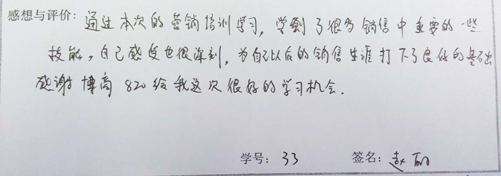 感想与评价：通过本次的营销培训学习，学到了很多销售中重要的一些
技能，自己感受也很深刻，为自己以后的销售生涯打下了良好的基础
感谢博商820给我这次很好的学习机会．
学号：33 签名：赵丽